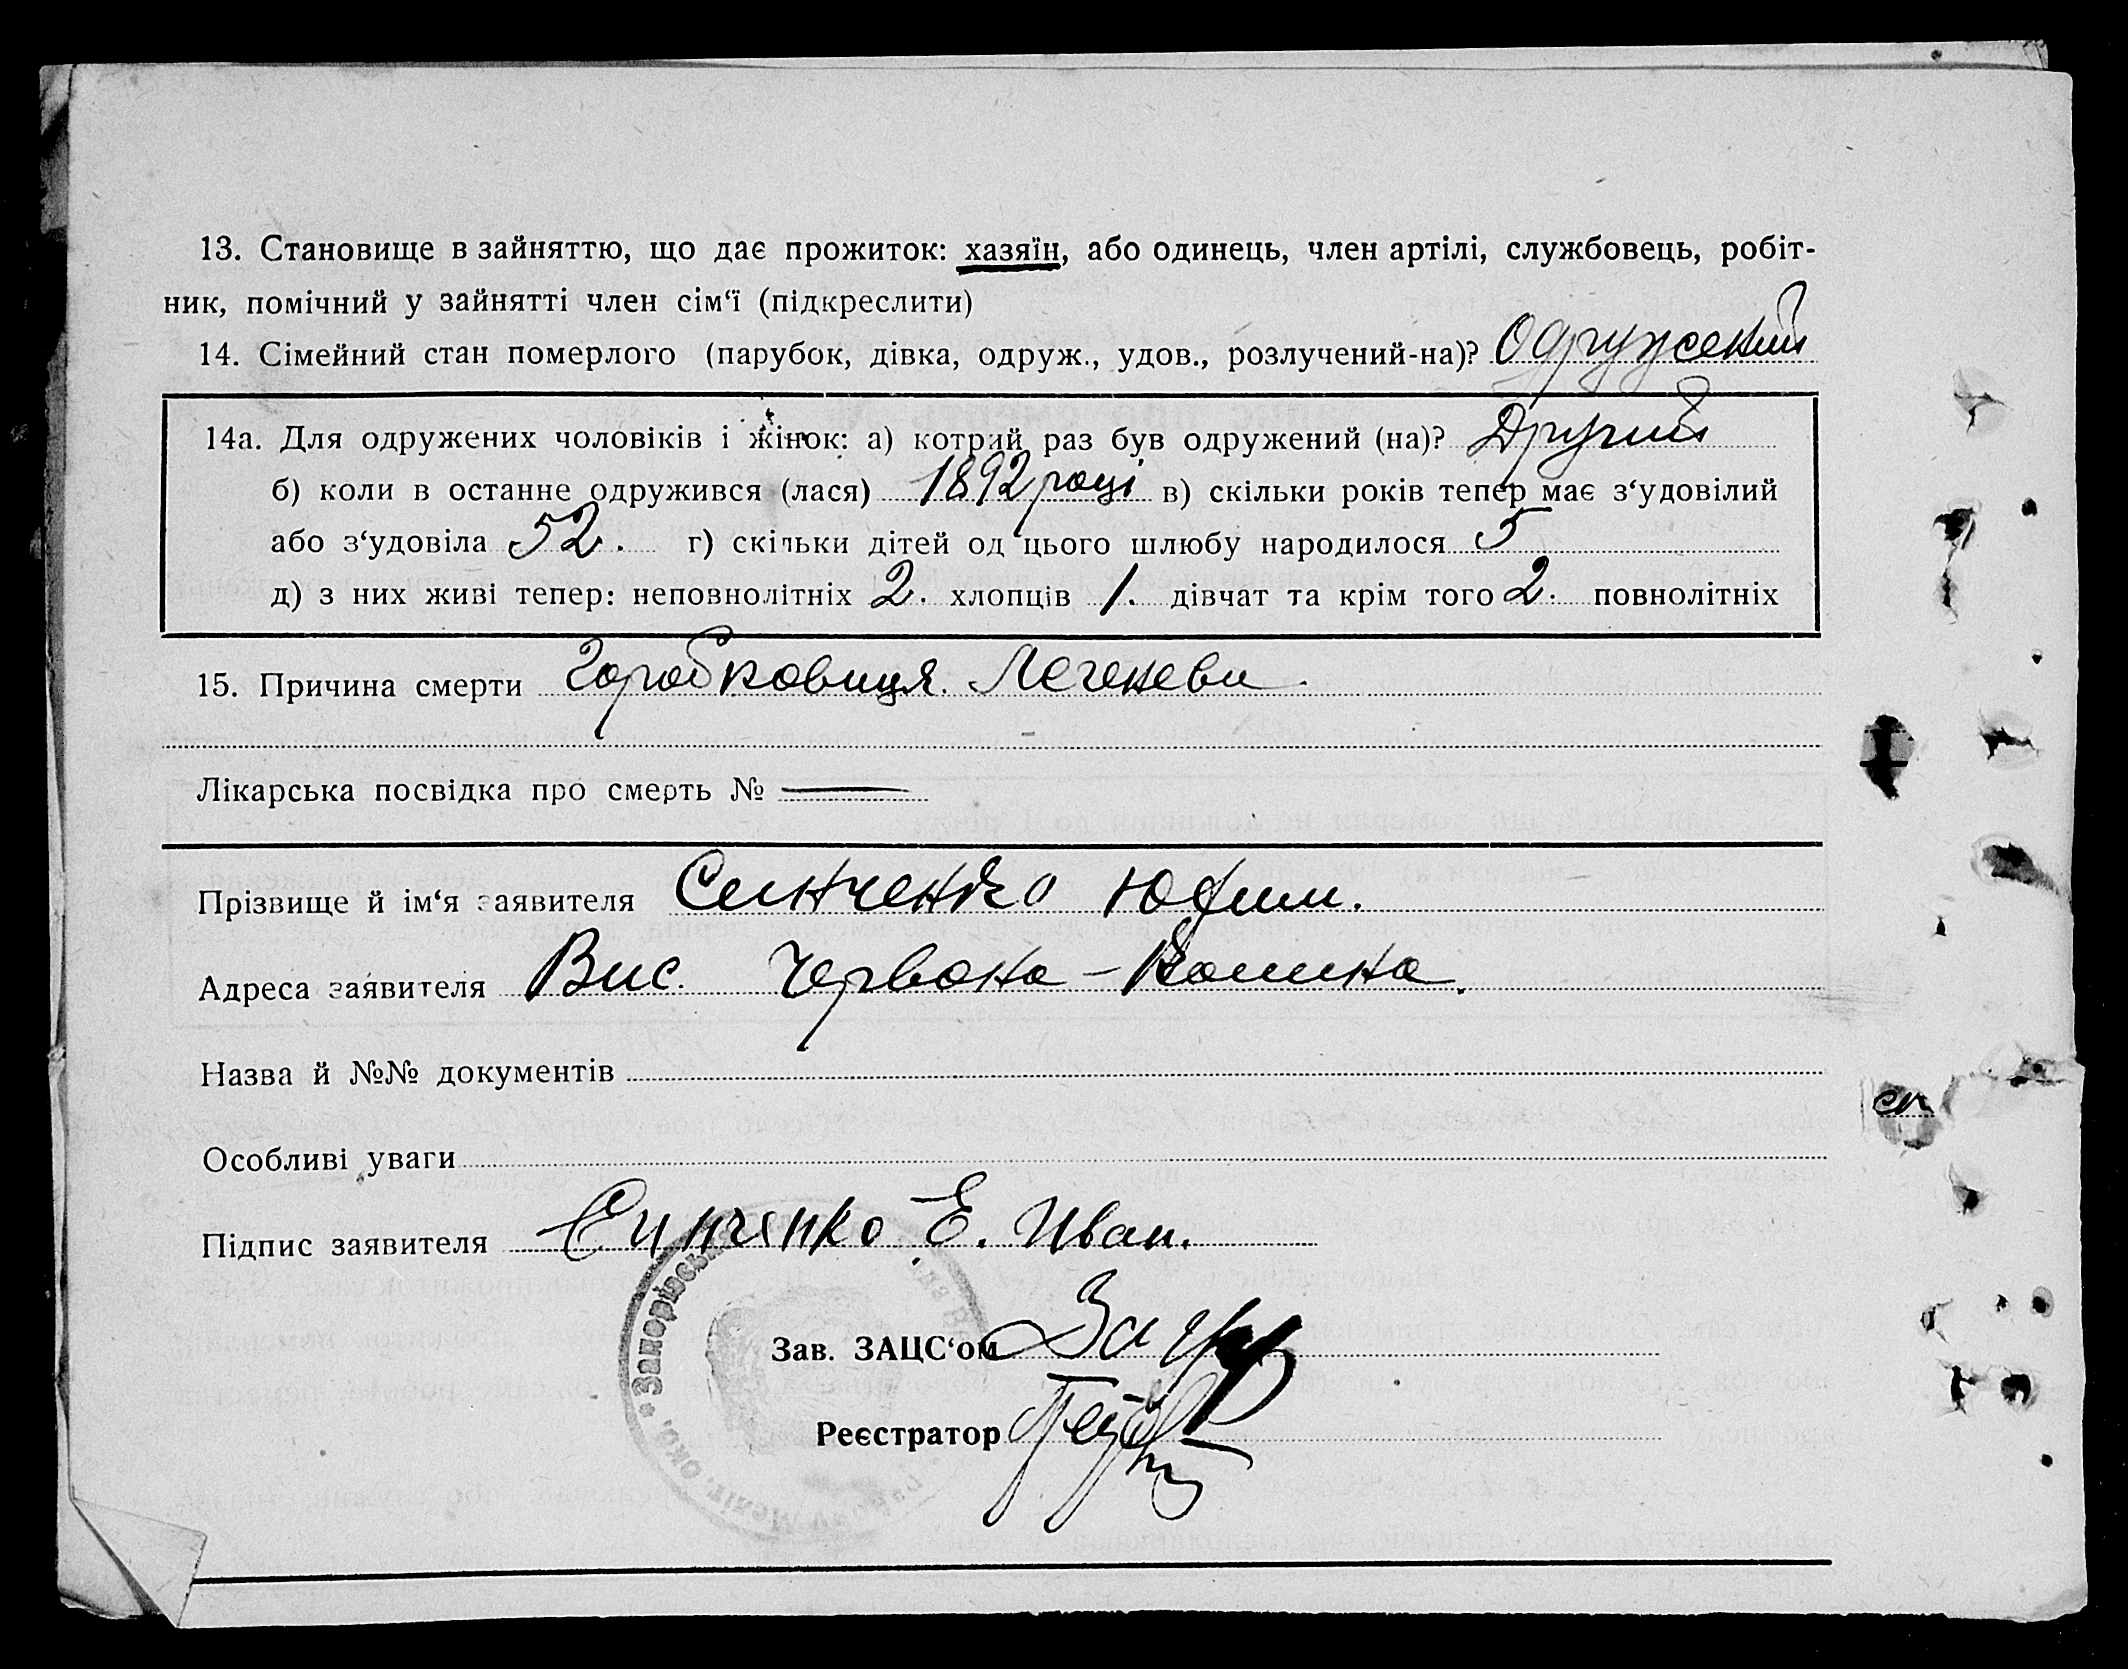 13. Становище в зайняттю, що дає прожиток: хазяїн, або одинець, член артілі, службовець, робіт-
ник, помічний у зайнятті член сім‘ї (підкреслити)
14. Сімейний стан померлого (парубок, дівка, одруж., удов., розлучений-на)? Одружений
14а. Для одружених чоловіків і жінок: а) котрий раз був одружений (на)? Другий
б) коли в останнє одружився (лася) 1892 році в) скільки років тепер має з‘удовілий
або з‘удовіла 52. г) скільки дітей од цього шлюбу народилося 5
д) з них живі тепер: неповнолітніх 2. хлопців 1. дівчат та крім того 2. повнолітніх
15. Причина смерти Горобковиця Легеневи
Лікарська посвідка про смерть № —
Прізвище й ім‘я заявителя Синченко Юфим.
Адреса заявителя Вис. Червона-Долина.
Назва й №№ документів
Особливі уваги
Підпис заявителя Синченко Е. Иван.
Запорізьк
окр.
Зав. ЗАЦС‘ом
Реєстратор